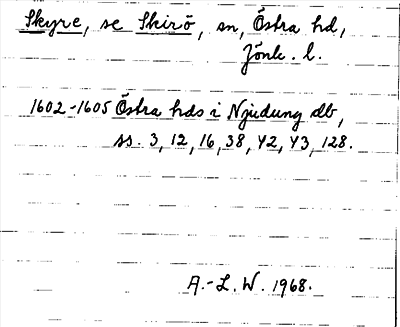 Skyre, se Skirö, sn, Östra hd,
Jönk. l.
1602-1605 Östra hds i Njudung db,
ss. 3, 12, 16, 38, 42, 43, 128.
A.-L. W. 1968.